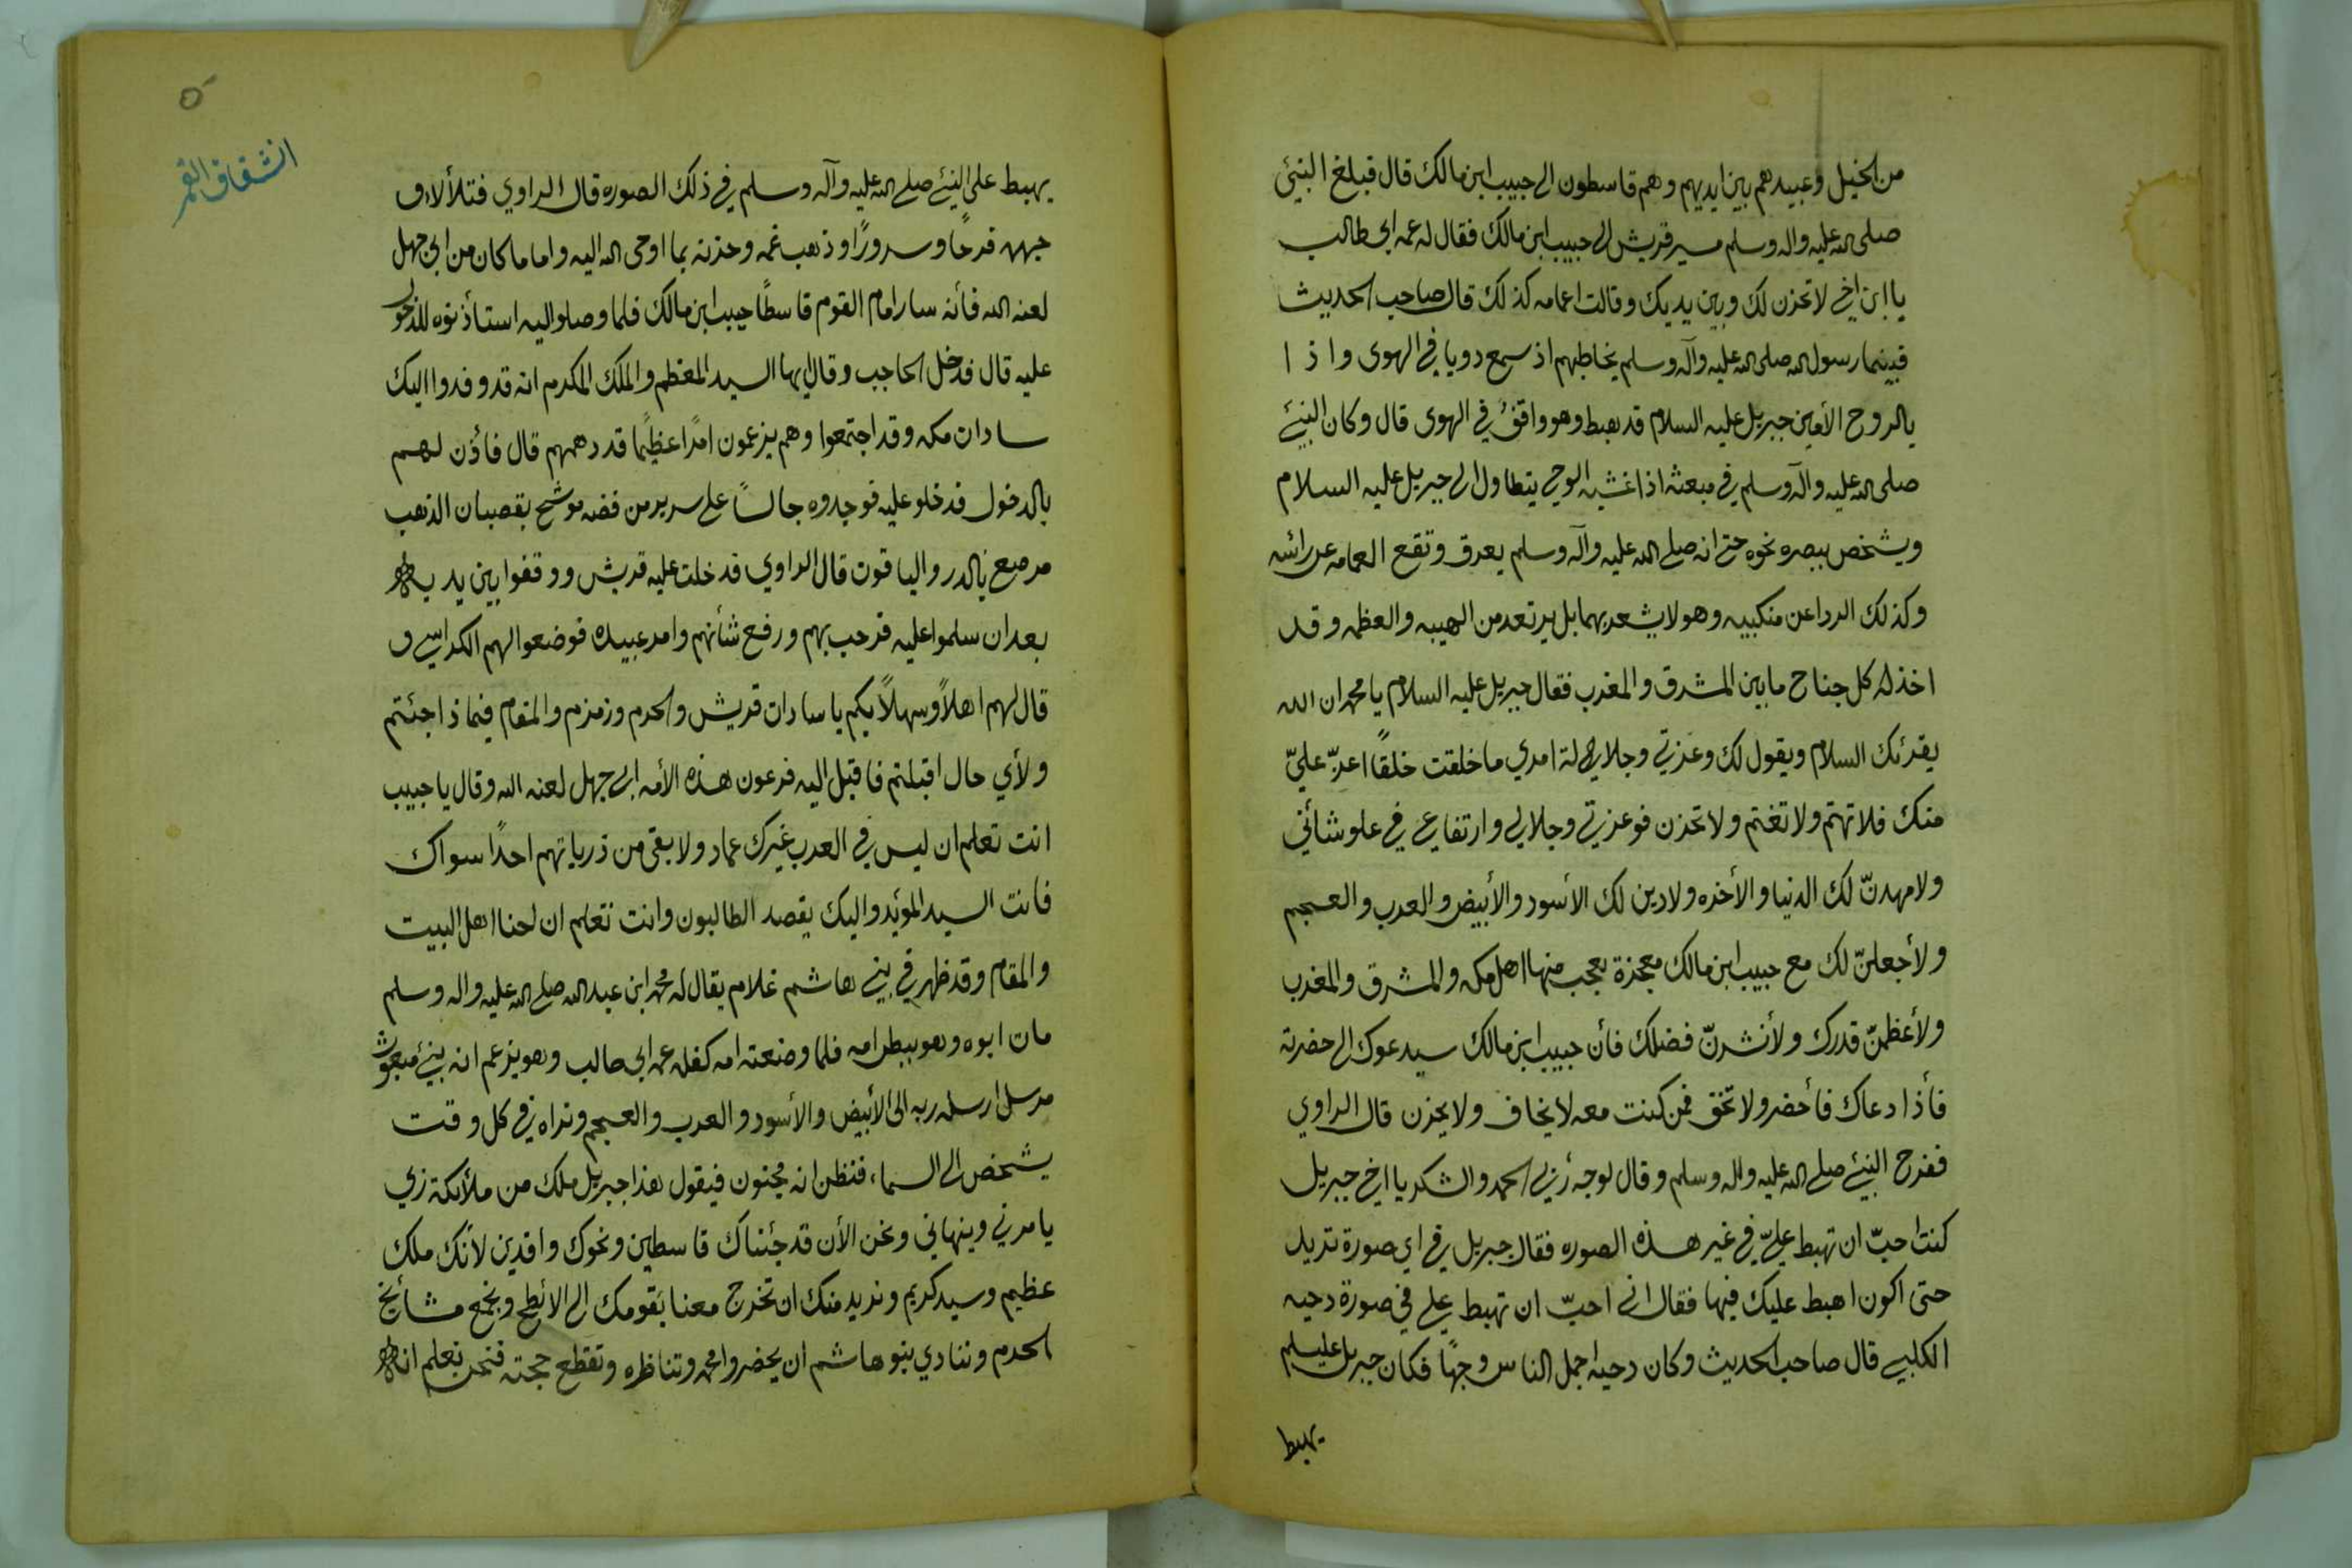 من الخيل وعبيدهم بين ايديهم وهم قاسطون الى حبيب ابن مالك قال فبلغ النبيّ
صلى الله عليه واله وسلم مسير قريش الى حبيب ابن مالك فقال له عمه ابي طالب
يا ابن اخي لا تحزن لك وبين يديك وقالت اعمامه كذلك قال صاحب الحديث
فبينما رسول الله صلى الله عليه وآله وسلم يخاطبهم اذ سمع دويا في الهوى واذا
بالروح الأمين جبريل عليه السلام قد هبط وهو واقفٌ في الهوى قال وكان النبيّ
صلى الله عليه وآله وسلم في مبعثه اذا غشيه الوحي يتطاول الى جبريل عليه السلام
ويشخص ببصره نحوه حتى انه صلى الله عليه وآله وسلم يعرق وتقع العمامه عن رائسه
وكذلك الردا عن منكبيه وهو لا يشعر بهما بل يرتعد من الهيبه والعظمه وقد
اخذ له كل جناح ما بين المشرق والمغرب فقال جبريل عليه السلام يا محمد ان الله
يقرئك السلام ويقول لك وعزتي وجلالي امري ما خلقت خلقًا اعزّ عليّ
منك فلا تهتم ولا تغتم ولا تحزن فوعزتي وجلالي وارتفاعي في علو شأني
ولامهدنّ لك الدنيا والأخره ولادين لك الأسود والأبيض والعرب والعجم
ولأجعلنّ لك مع حبيب ابن مالك معجزة يعجب منها اهل مكه والمشرق والمغرب
ولأعظمنّ قدرك ولأنشرنّ فضلك فأن حبيب ابن مالك سيدعوك الى حضرته
فأذا دعاك فأحضر ولا تخف فمن كنت معه لا يخاف ولا يحزن قال الراوي
ففرح النبيّ صلى الله عليه واله وسلم وقال لوجه ربي الحمد والشكر يا اخي جبريل
كنت احبّ ان تهبط عليّ في غير هذه الصوره فقال جبريل في اي صورة تريد
حتى اكون اهبط عليك فيها فقال اني احبّ ان تهبط علي في صورة دحيه
الكلبي قال صاحب الحديث وكان دحيه اجمل الناس وجهًا فكان جبريل عليسلم
يهبط
٥
انشقاق القمر
يهبط على النبيّ صلى الله عليه وآله وسلم في ذلك الصوره قال الراوي فتلألأ و
جهه فرحًا وسرورًا وذهب غمه وحزنه بما اوحى الله اليه واما ما كان من ابي جهل
لعنه الله فأنه سار امام القوم قاسطًا حبيب ابن مالك فلما وصلوا اليه استأذنوه للدخول
عليه قال فدخل الحاجب وقال ايها السيد المعظم والملك المكرم انه قد وفدوا اليك
سادات مكه وقد اجتمعوا وهم يزعمون امرًا عظيمًا قد دهمهم قال فأذن لهم
بالدخول فدخلو عليه فوجدوه جالسًا على سرير من فضه موشح بقصبان الذهب
مرصع بالدر والياقوت قال الراوي فدخلت عليه قريش ووقفوا بين يديه
بعد ان سلموا عليه فرحب بهم ورفع شأنهم وامر عبيده فوضعوا لهم الكراسي و
قال لهم اهلاً وسهلاً بكم يا سادات قريش والحرم وزمزم والمقام فيما ذا جئتم
ولأي حال اقبلتم فاقبل اليه فرعون هذه الأمه ابي جهل لعنه الله وقال يا حبيب
انت تعلم ان ليس في العرب غيرك عماد ولا بقى من ذرياتهم احدًا سواك
فانت السيد المؤيد واليك يقصد الطالبون وانت تعلم ان لحنا اهل البيت
والمقام وقد ظهر في بني هاشم غلام يقال له محمد ابن عبد الله صلى الله عليه واله وسلم
مات ابوه وهو ببطن امه فلما وضعته امه كفله عمه ابي طالب وهو يزعم انه نبيّ مبعوث
مرسل ارسله ربه الى الأبيض والأسود والعرب والعجم ونراه في كل وقت
يشخص الى السماء فنظن انه مجنون فيقول هذا جبريل ملك من ملائكة ربي
يامرني وينهاني ونحن الأن قد جئناك قاسطين ونحوك وافدين لأنك ملك
عظيم وسيد كريم ونريد منك ان تخرج معنا بقومك الى الأبطح ونجمع مشائخ
الحرم وننادي بنو هاشم ان يحضروا محمد وتناظره وتقطع حجته فنحن نعلم انه